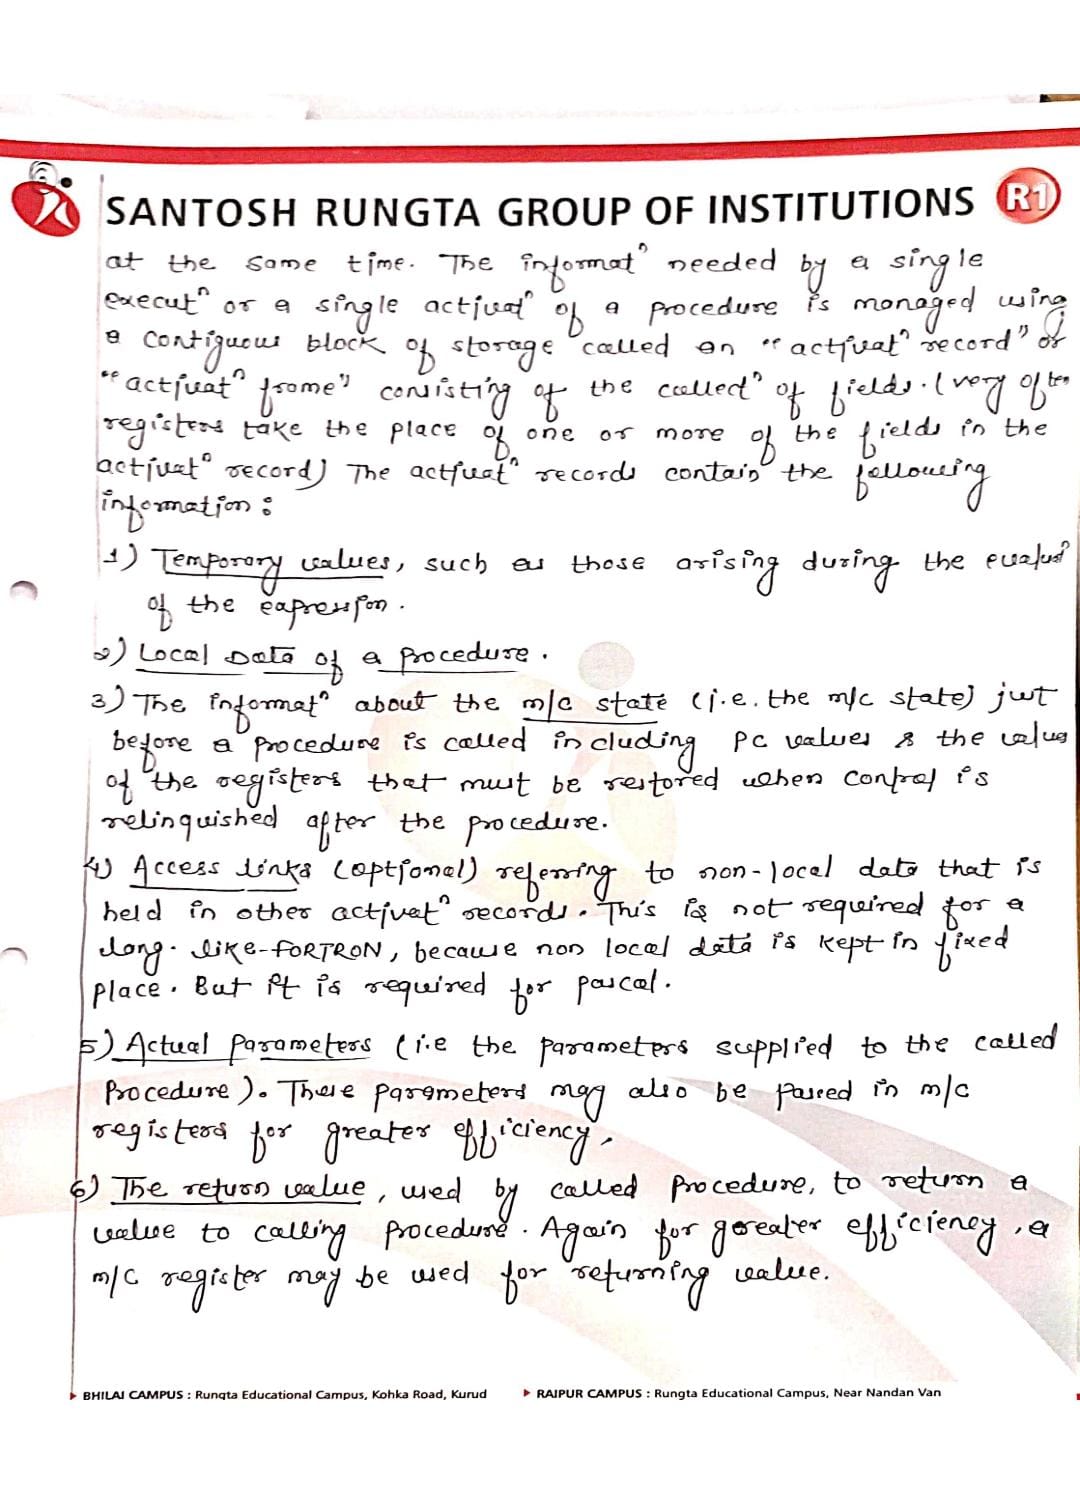 SANTOSH RUNGTA GROUP OF INSTITUTIONS R1
at the same time. The informatⁿ needed by a single
executⁿ or a single activatⁿ of a procedure is managed using
a contiguous block of storage called an "activatⁿ record" or
"activatⁿ frame" consisting of the collectⁿ of fields. (very often
registers take the place of one or more of the fields in the
activatⁿ record) The activatⁿ records contain the following
information :
1) Temporary values, such as those arising during the evaluatⁿ
of the expression.
2) Local Data of a procedure.
3) The informatⁿ about the m/c state (i.e. the m/c state) just
before a procedure is called including PC values & the values
of the registers that must be restored when control is
relinquished after the procedure.
4) Access links (optional) referring to non-local data that is
held in other activatⁿ records. This is not required for a
lang. like-FORTRON, because non local data is kept in fixed
place. But it is required for pascal.
5) Actual Parameters (i.e the parameters supplied to the called
Procedure). These parameters may also be passed in m/c
registers for greater efficiency.
6) The return value, used by called procedure, to return a
value to calling procedure. Again for greater efficiency, a
m/c register may be used for returning value.
BHILAI CAMPUS : Rungta Educational Campus, Kohka Road, Kurud RAIPUR CAMPUS : Rungta Educational Campus, Near Nandan Van